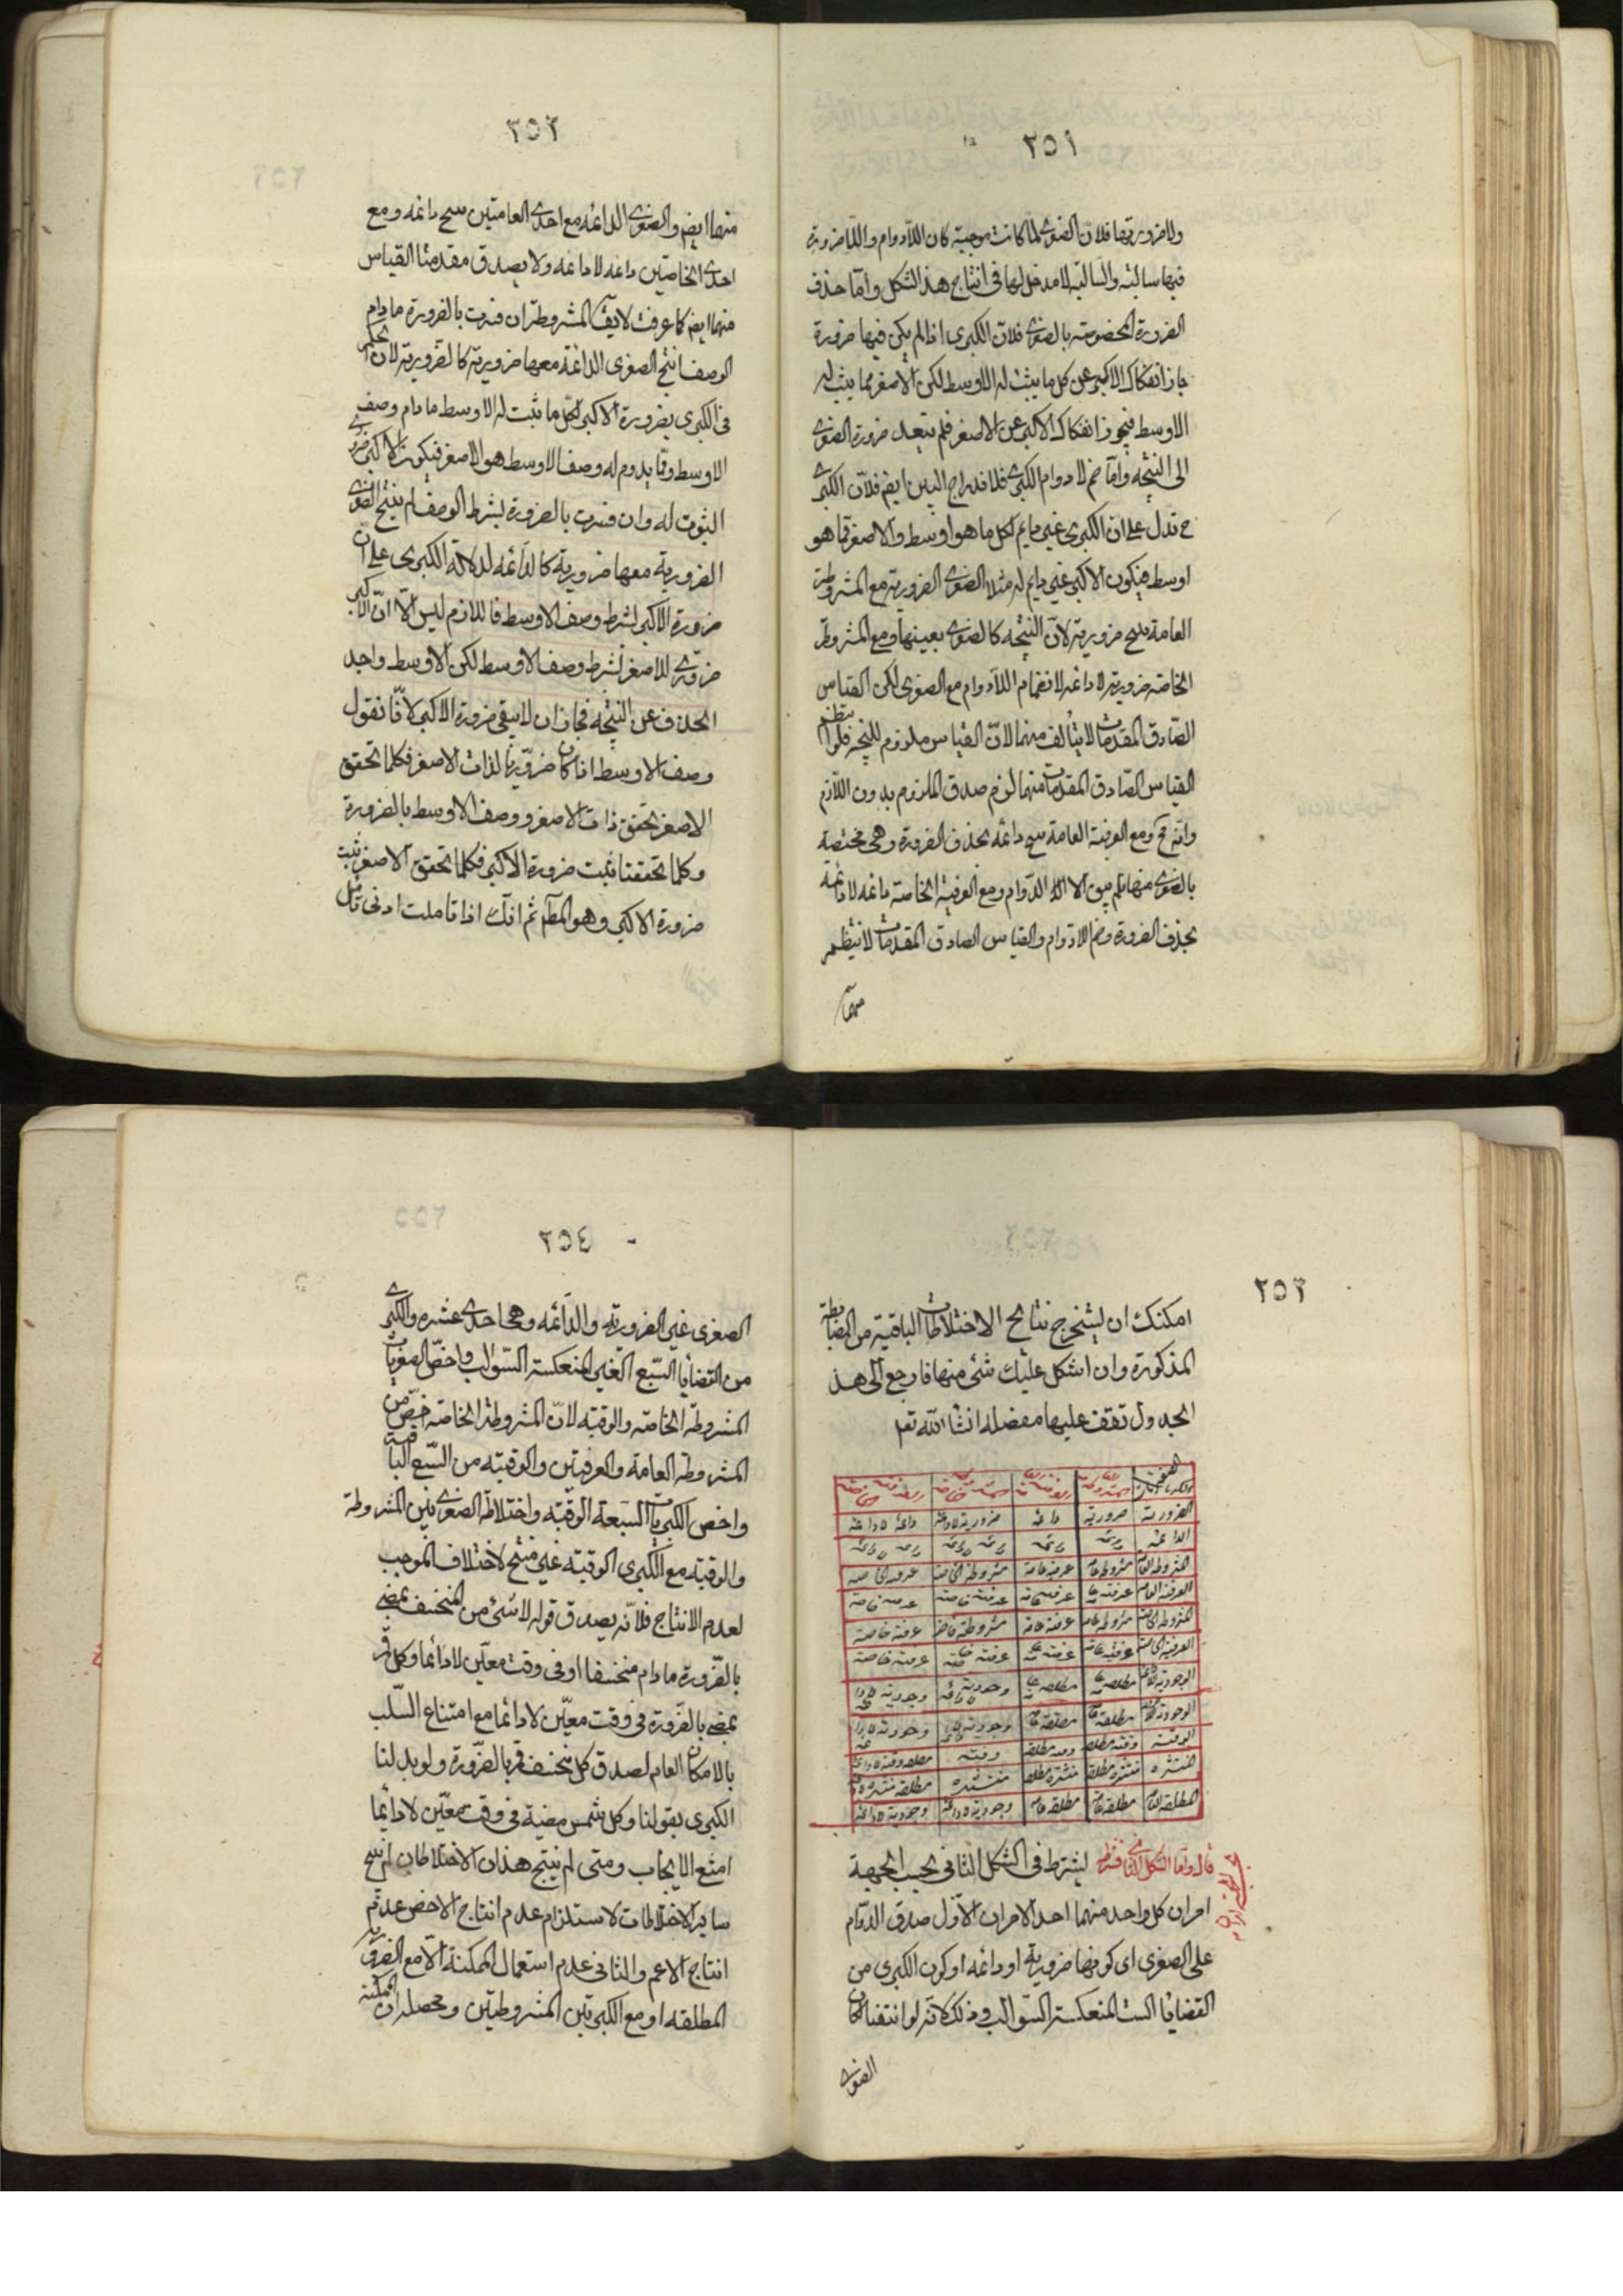 ٢٥١
ولا ضرورتها فلان الصغرى لما كانت موجبة كان اللادوام واللاضرورة
فيها سالبة والسالبة لا مدخل لها فى انتاج هذا الشكل واما حذف
الضرورة المخصوصة بالصغرى فلان الكبرى اذا لم يكن فيها ضرورة
جاز انفكاك الاكبر عن كل ما يثبت له الاوسط لكن الاصغر مما يثبت له
الاوسط فيجوز انفكاك الاكبر عن الاصغر فلم يتعد ضرورة الصغرى
الى النتيجه واما ضم لا دوام الكبرى فلاندراج البين ايضم فلان الكبرى
ح تدل على ان الكبرى غير دايم لكل ما هو اوسط والاصغر مما هو
اوسط فيكون الاكبر غير دايم له مثلا الصغرى الضرورية مع المشروطة
العامة ينتج ضرورية لان النتيجه كالصغرى بعينها ومع المشروطة
الخاصة ضرورية لا دائمه لانضمام اللادوام مع الصغرى لكن القياس
الصادق المقدمات لا يتألف منهما لان القياس ملزوم للنتيجه فلو انتظم
القياس الصادق المقدمات منهما لزم صدق الملزوم بدون اللازم
وانه مح ومع العرفية العامة ينتج دائمه بحذف الضرورة وهى مختصة
بالصغرى منها فلم يبق الا الدوام ومع العرفية الخاصة دائمه لا دائمة
بحذف الضرورة وضم اللادوام والقياس الصادق المقدمات لا ينتظم
منهما
٢٥٢
منهما ايضم والصغرى الدائمه مع احدى العامتين ينتج دائمه ومع
احدى الخاصتين دائمه لا دائمه ولا يصدق مقدمتا القياس
منهما ايضم كما عرفت لا يقم المشروطة ان فسرت بالضرورة ما دام
الوصف انتج الصغرى الدائمة معها ضرورية كالضرورية لان الحكم
فى الكبرى بضرورة الاكبر لكل ما ثبت له الاوسط ما دام وصف
الاوسط ومما يدوم له وصف الاوسط هو الاصغر فيكون الاكبر ضرورى
الثبوت له وان فسرت بالضرورة بشرط الوصف لم ينتج الصغرى
الضرورية معها ضرورية كالدائمه لدلالة الكبرى على ان
ضرورة الاكبر بشرط وصف الاوسط فاللازم ليس الا ان الاكبر
ضرورى للاصغر بشرط وصف الاوسط لكن الاوسط واجب
الحذف عن النتيجه فجاز ان لا يبقى ضرورة الاكبر لانا نقول
وصف الاوسط اذا كان ضروريا لذات الاصغر فكلما تحقق
الاصغر تحقق ذات الاصغر ووصف الاوسط بالضرورة
وكلما تحققتا ثبت ضرورة الاكبر فكلما تحقق الاصغر ثبت
ضرورة الاكبر وهو المطم ثم انك اذا تاملت ادنى تأمل
٢٥٣
امكنك ان تستخرج نتايج الاختلاطات الباقية من الضابطة
المذكورة وان اشكل عليك شئ منها فارجع الى هذا
الجدول تقف عليها مفصله انشا الله تعم
الضرورية ضرورية دائمه ضرورية لادائمة دائمه لا دائمة
المشروطة العامه مشروطة عامه عرفية عامة مشروطة خاصة عرفية خاصة
العرفية العامه عرفية عامة عرفية عامة عرفية خاصة عرفية خاصة
المشروطة الخاصة مشروطة عامه عرفية عامة مشروطة خاصة عرفية خاصة
العرفية الخاصة عرفية عامة عرفية عامة عرفية خاصة عرفية خاصة
الوقتية وقتية مطلقه وقتيه مطلقه وقتية مطلقه وقتية لا دائمة
المنتشره منتشره مطلقة منتشره مطلقه منتشره مطلقه منتشره لادائمة
المطلقة العامه مطلقة عامه مطلقه عامه وجودية لادائمة وجودية لادائمة
قال واما الشكل الثانى فشرطه يشترط فى الشكل الثانى بحسب الجهة
امران كل واحد منهما احد الامران الاول صدق الدوام
على الصغرى اى كونها ضرورية او دائمه او كون الكبرى من
القضايا الست المنعكسة السوالب وذلك لانه لو انتفيا لكان
الصغرى
٢٥٤
الصغرى غير الضرورية والدائمه وهى احدى عشره والكبرى
من القضايا السبع الغير المنعكسة السوالب واخص الصغريات
المشروطة الخاصة والوقتية لان المشروطة الخاصة اخص من
المشروطة العامة والعرفيتين والوقتية من السبع الباقية
واخص الكبريات السبعة الوقتية واختلاط الصغريين المشروطة
والوقتية مع الكبرى الوقتية غير منتج لاختلاف الموجب
لعدم الانتاج فلانه يصدق قوله لا شئ من المنخسف بمضئ
بالضرورة ما دام منخسفا او فى وقت معين لا دائما وكل قمر
بمضئ بالضرورة فى وقت معين لا دائما مع امتناع السلب
بالامكان العام لصدق كل منخسف قمر بالضرورة ولو بدلنا
الكبرى بقولنا وكل شمس مضيئة فى وقت معين لا دايما
امتنع الايجاب ومتى لم ينتج هذان الاختلاطان لم ينتج
ساير الاختلاطات لاستلزام عدم انتاج الاخص عدم
انتاج الاعم والثانى عدم استعمال الممكنة الا مع الضرورية
المطلقه او مع الكبريتين المشروطتين ومحصله ان الممكنه